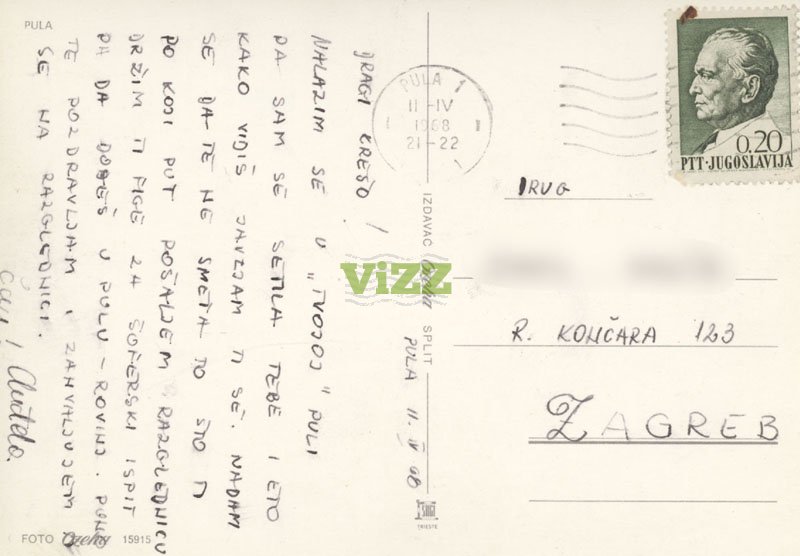 PULA
DRAGI KREŠO!
NALAZIM SE U „TVOJOJ" PULI
PA SAM SE SETILA TEBE I ETO
KAKO VIDIŠ JAVLJAM TI SE. NADAM
SE DA TE NE SMETA TO ŠTO TI
PO KOJI PUT POŠALJEM RAZGLEDNICU
DRŽIM TI FIGE ZA ŠOFERSKI ISPIT
PA DA DOĐEŠ U PULU - ROVINJ.
TE POZDRAVLJAM I ZAHVALJUJEM
SE NA RAZGLEDNICI.
Čau!
PULA 11. IV 68
FOTO 15915
IZDAVAČ SPLIT
TRIESTE
PULA 1
11-IV
1968
21-22
0.20
PTT·JUGOSLAVIJA
DRUG
R. KONČARA 123
ZAGREB
ViZZ